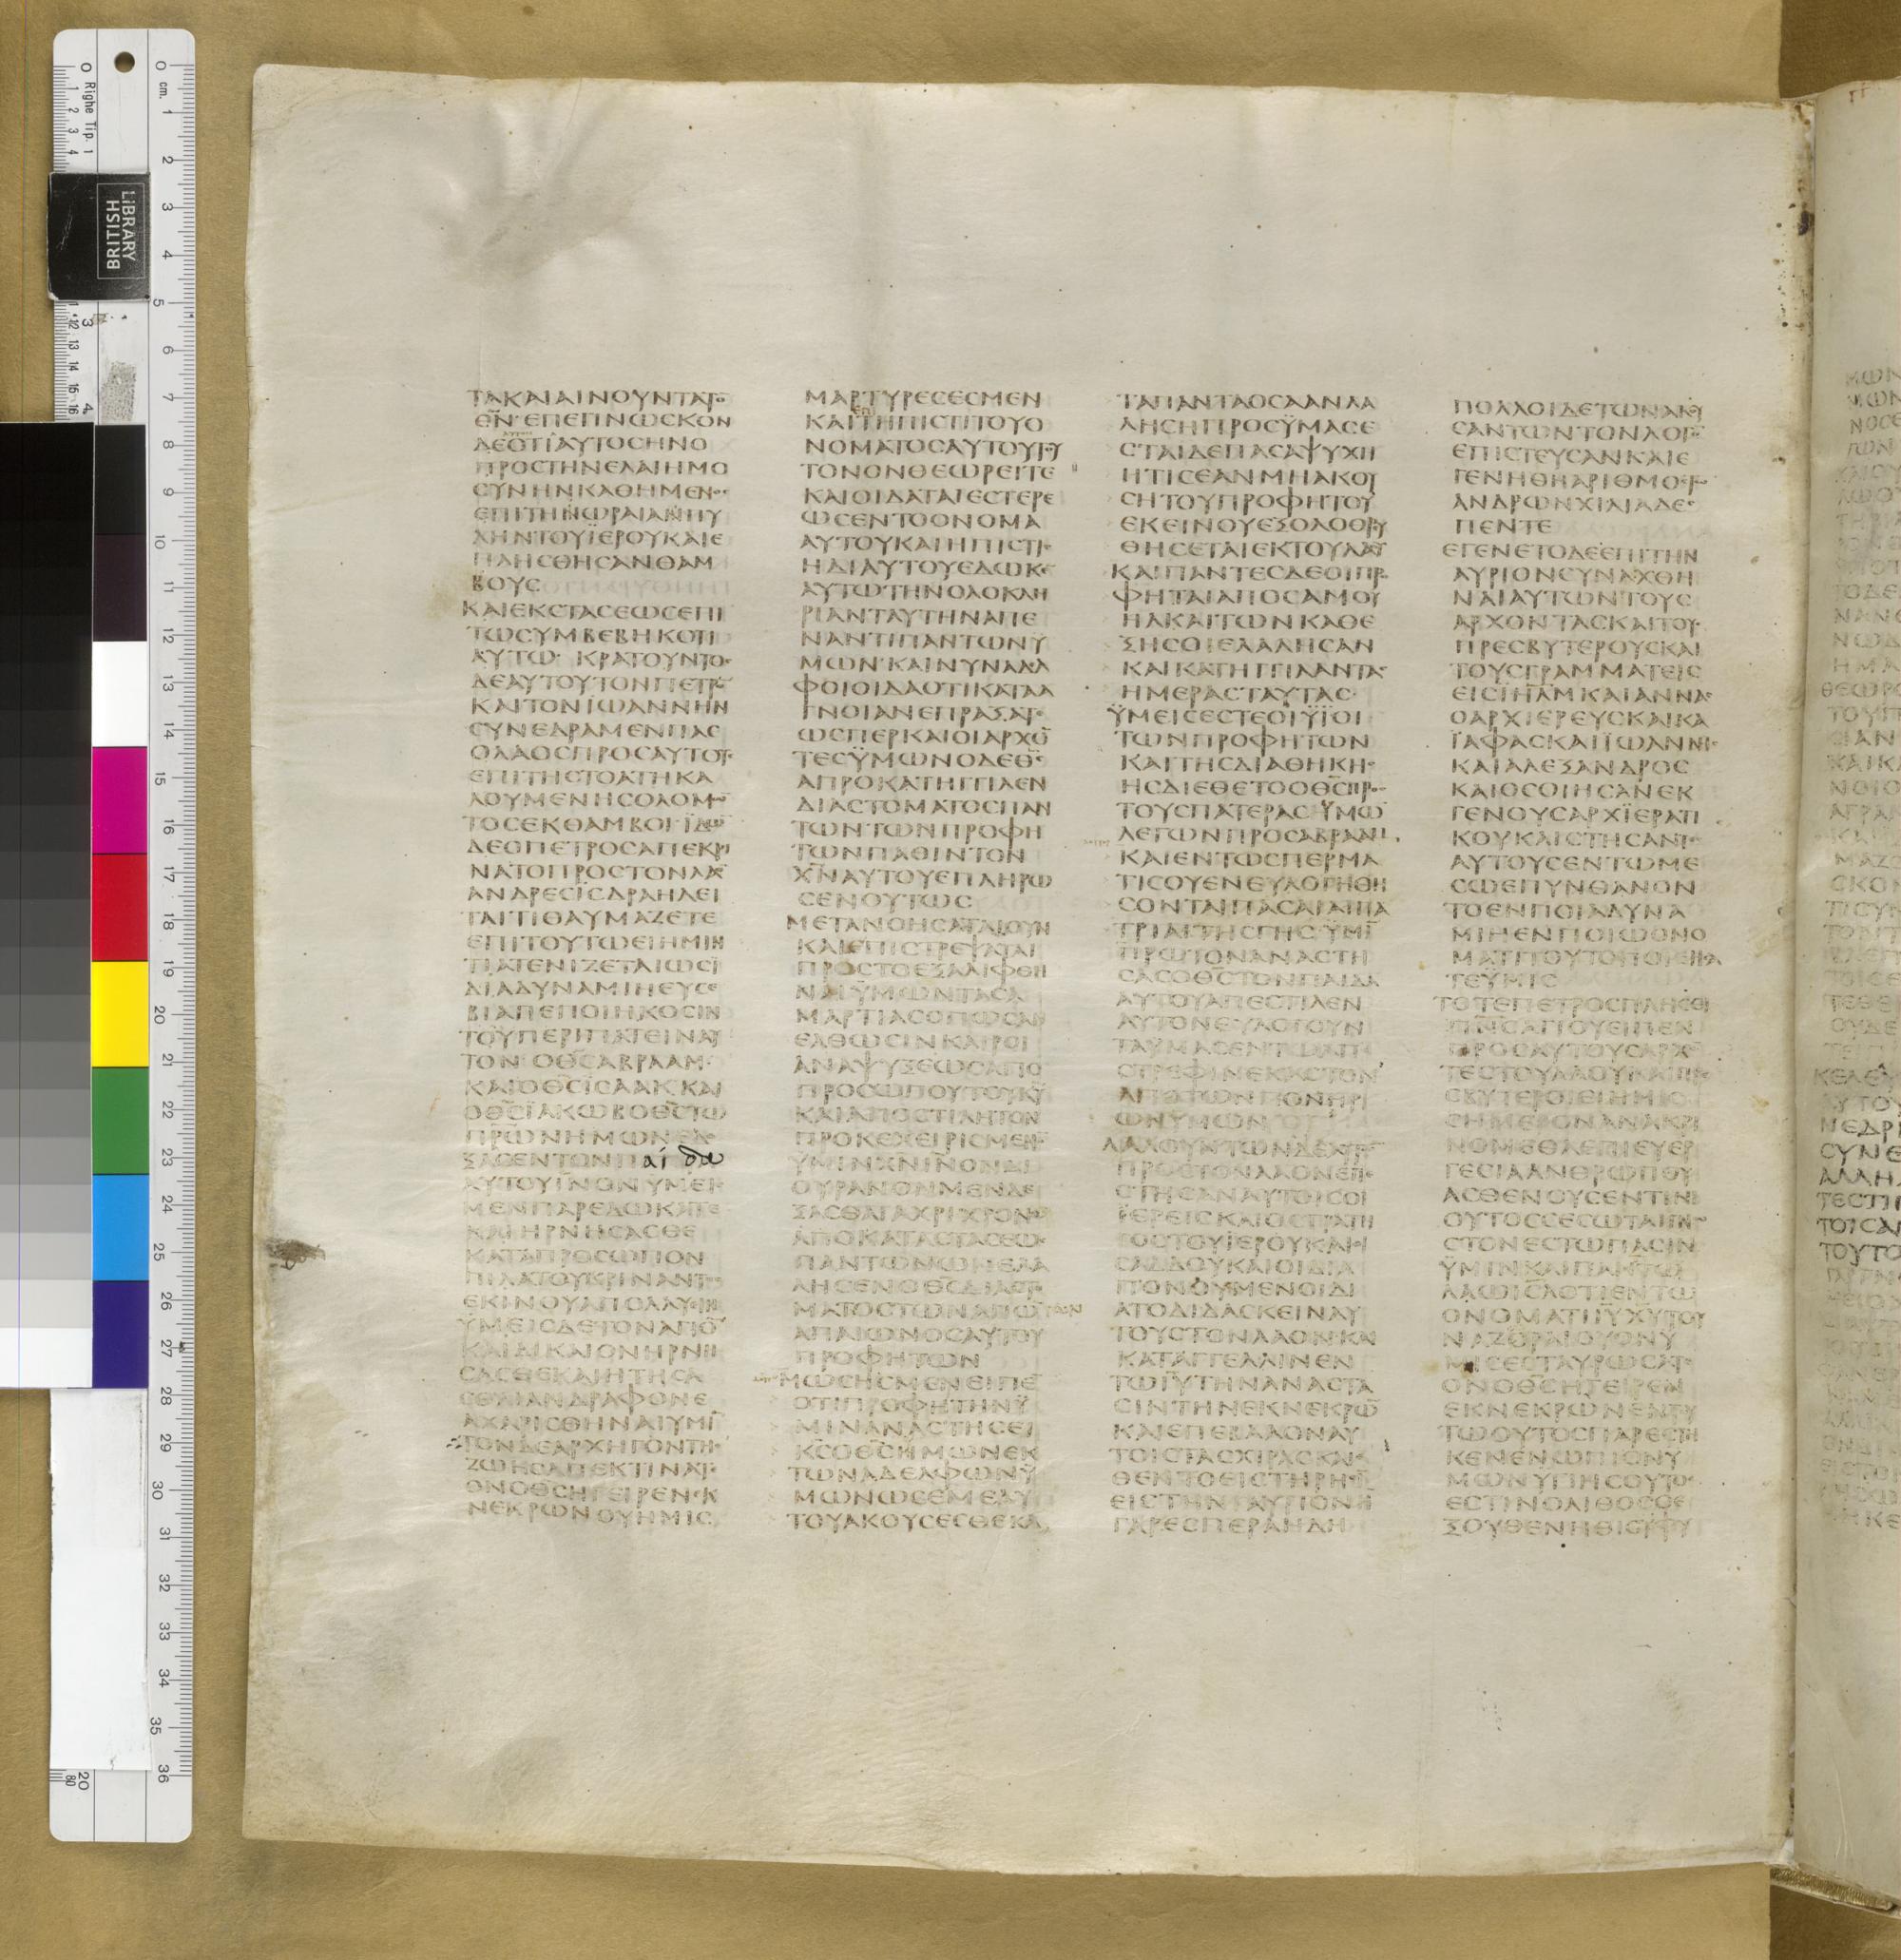 ΤΑΚΑΙΑΙΝΟΥΝΤΑΤΟ
ΘΝ·ΕΠΕΓΙΝΩϹΚΟΝ
ΔΕΟΤΙΑΥΤΟϹΗΝΟ
ΠΡΟϹΤΗΝΕΛΑΙΗΜΟ
ϹΥΝΗΝΚΑΘΗΜΕΝΟϹ
ΕΠΙΤΗΝΩΡΑΙΑΝΠΥ
ΛΗΝΤΟΥΪΕΡΟΥΚΑΙΕ
ΠΛΗϹΘΗϹΑΝΘΑΜ
ΒΟΥϹ
ΚΑΙΕΚϹΤΑϹΕΩϹΕΠΙ
ΤΩϹΥΜΒΕΒΗΚΟΤΙ
ΑΥΤΩ·ΚΡΑΤΟΥΝΤΟϹ
ΔΕΑΥΤΟΥΤΟΝΠΕΤΡΟ
ΚΑΙΤΟΝΪΩΑΝΝΗΝ
ϹΥΝΕΔΡΑΜΕΝΠΑϹ
ΟΛΑΟϹΠΡΟϹΑΥΤΟΥϹ
ΕΠΙΤΗϹΤΟΑΤΗΚΑ
ΛΟΥΜΕΝΗϹΟΛΟΜΩ
ΤΟϹΕΚΘΑΜΒΟΙ·ΪΔΩ
ΔΕΟΠΕΤΡΟϹΑΠΕΚΡΙ
ΝΑΤΟΠΡΟϹΤΟΝΛΑΟ
ΑΝΔΡΕϹΪϹΔΡΑΗΛΕΙ
ΤΑΙΤΙΘΑΥΜΑΖΕΤΕ
ΕΠΙΤΟΥΤΩΕΙΗΜΙΝ
ΤΙΑΤΕΝΙΖΕΤΑΙΩϹΪ
ΔΙΑΔΥΝΑΜΙΗΕΥϹΕ
ΒΙΑΠΕΠΟΙΗΚΟϹΙΝ
ΤΟΥΠΕΡΙΠΑΤΕΙΝΑΥ
ΤΟΝ·ΟΘϹΑΒΡΑΑΜ·
ΚΑΙΟΘϹΪϹΑΑΚΚΑΙ
ΟΘϹΪΑΚΩΒΟΘϹΤΩ
ΠΡΩΝΗΜΩΝΕΔΟ
ΞΑϹΕΝΤΟΝΠΑΙΔΑ
ΑΥΤΟΥΙΝΟΝΥΜΕΙϹ
ΜΕΝΠΑΡΕΔΩΚΑΤΕ
ΚΑΙΗΡΝΗϹΑϹΘΕ
ΚΑΤΑΠΡΟϹΩΠΟΝ
ΠΙΛΑΤΟΥΚΡΙΝΑΝΤΟϹ
ΕΚΙΝΟΥΑΠΟΛΛΥΕΙΝ
ΥΜΕΙϹΔΕΤΟΝΑΓΙΟ
ΚΑΙΔΙΚΑΙΟΝΗΡΝΗ
ϹΑϹΘΕΚΑΙΗΤΗϹΑ
ϹΘΑΙΑΝΔΡΑΦΟΝΕ
ΑΧΑΡΙϹΘΗΝΑΙΥΜΙ
ΤΟΝΔΕΑΡΧΗΓΟΝΤΗϹ
ΖΩΗϹΑΠΕΚΤΙΝΑΤΕ
ΟΝΟΘϹΗΓΕΙΡΕΝΕΚ
ΝΕΚΡΩΝΟΥΗΜΙϹ
ΜΑΡΤΥΡΕϹΕϹΜΕΝ
ΚΑΙΤΗΠΙϹΤΙΤΟΥΟ
ΝΟΜΑΤΟϹΑΥΤΟΥΤΟΥ
ΤΟΝΟΝΘΕΩΡΕΙΤΕ
ΚΑΙΟΙΔΑΤΑΙΕϹΤΕΡΕ
ΩϹΕΝΤΟΟΝΟΜΑ
ΑΥΤΟΥΚΑΙΗΠΙϹΤΙϹ
ΗΔΙΑΥΤΟΥΕΔΩΚΕ
ΑΥΤΩΤΗΝΟΛΟΚΛΗ
ΡΙΑΝΤΑΥΤΗΝΑΠΕ
ΝΑΝΤΙΠΑΝΤΩΝΥ
ΜΩΝ·ΚΑΙΝΥΝΑΔΛ
ΦΟΙΟΙΔΑΟΤΙΚΑΤΑΑ
ΓΝΟΙΑΝΕΠΡΑΞΑΤΕ
ΩϹΠΕΡΚΑΙΟΙΑΡΧΟ
ΤΕϹΫΜΩΝΟΔΕΘϹ
ΑΠΡΟΚΑΤΗΓΓΙΛΕΝ
ΔΙΑϹΤΟΜΑΤΟϹΠΑΝ
ΤΩΝΤΩΝΠΡΟΦΗ
ΤΩΝΠΑΘΙΝΤΟΝ
ΧΝΑΥΤΟΥΕΠΛΗΡΩ
ϹΕΝΟΥΤΩϹ
ΜΕΤΑΝΟΗϹΑΤΑΙΟΥΝ
ΚΑΙΕΠΙϹΤΡΕΨΑΤΑΙ
ΠΡΟϹΤΟΕΞΑΛΙΦΘΗ
ΝΑΙΫΜΩΝΤΑϹΑ
ΜΑΡΤΙΑϹΟΠΩϹΑΝ
ΕΛΘΩϹΙΝΚΑΙΡΟΙ
ΑΝΑΨΥΞΕΩϹΑΠΟ
ΠΡΟϹΩΠΟΥΤΟΥΚΥ
ΚΑΙΑΠΟϹΤΙΛΗΤΟΝ
ΠΡΟΚΕΧΕΙΡΙϹΜΕΝΟ
ΥΜΙΝΧΝΙΝΟΝΔΙ
ΟΥΡΑΝΟΝΜΕΝΔΕ
ΞΑϹΘΑΙΑΧΡΙΧΡΟΝΩ
ΑΠΟΚΑΤΑϹΤΑϹΕΩϹ
ΠΑΝΤΩΝΩΝΕΛΑ
ΛΗϹΕΝΟΘϹΔΙΑϹΤΟ
ΜΑΤΟϹΤΩΝΑΓΙΩ
ΑΠΑΙΩΝΟϹΑΥΤΟΥ
ΠΡΟΦΗΤΩΝ
ΜΩϹΗϹΜΕΝΕΙΠΕ
ΟΤΙΠΡΟΦΗΤΗΝΫ
ΜΙΝΑΝΑϹΤΗϹΕΙ
ΚϹΟΘϹΗΜΩΝΕΚ
ΤΩΝΑΔΕΛΦΩΝΫ
ΜΩΝΩϹΕΜΕΑΥ
ΤΟΥΑΚΟΥϹΕϹΘΕΚΑ
ΤΑΠΑΝΤΑΟϹΑΑΝΛΑ
ΛΗϹΗΠΡΟϹΫΜΑϹΕ
ϹΤΑΙΔΕΠΑϹΑΨΥΧΗ
ΗΤΙϹΕΑΝΜΗΑΚΟΥ
ϹΗΤΟΥΠΡΟΦΗΤΟΥ
ΕΚΕΙΝΟΥΕΞΟΛΟΘΡΥ
ΘΗϹΕΤΑΙΕΚΤΟΥΛΑΟΥ
ΚΑΙΠΑΝΤΕϹΔΕΟΙΠΡΟ
ΦΗΤΑΙΑΠΟϹΑΜΟΥ
ΗΛΚΑΙΤΩΝΚΑΘΕ
ΞΗϹΟϹΟΙΕΛΑΛΗϹΑΝ
ΚΑΙΚΑΤΗΓΓΙΛΑΝΤΑϹ
ΗΜΕΡΑϹΤΑΥΤΑϹ·
ΫΜΕΙϹΕϹΤΕΟΙΫΪΟΙ
ΤΩΝΠΡΟΦΗΤΩΝ
ΚΑΙΤΗϹΔΙΑΘΗΚΗϹ
ΗϹΔΙΕΘΕΤΟΟΘϹΠΡΟϹ
ΤΟΥϹΠΑΤΕΡΑϹΫΜΩ
ΛΕΓΩΝΠΡΟϹΑΒΡΑΑΜ
ΚΑΙΕΝΤΩϹΠΕΡΜΑ
ΤΙϹΟΥΕΝΕΥΛΟΓΗΘΗ
ϹΟΝΤΑΙΠΑϹΑΙΑΙΠΑ
ΤΡΙΑΙΤΗϹΓΗϹ·ΫΜΙ
ΠΡΩΤΟΝΑΝΑϹΤΗ
ϹΑϹΟΘϹΤΟΝΠΑΙΔΑ
ΑΥΤΟΥΑΠΕϹΤΙΛΕΝ
ΑΥΤΟΝΕΥΛΟΓΟΥΝ
ΤΑΥΜΑϹΕΝΤΩΑΠΟ
ϹΤΡΕΦΙΝΕΚΑϹΤΟΝ
ΑΠΟΤΩΝΠΟΝΗΡΙ
ΩΝΥΜΩΝ
ΛΑΛΟΥΝΤΩΝΔΕΑΥΤΩ
ΠΡΟϹΤΟΝΛΑΟΝΕΠΕ
ϹΤΗϹΑΝΑΥΤΟΙϹΟΙ
ΪΕΡΕΙϹΚΑΙΟϹΤΡΑΤΗ
ΓΟϹΤΟΥΪΕΡΟΥΚΑΙΟΙ
ϹΑΔΔΟΥΚΑΙΟΙΔΙΑ
ΠΟΝΟΥΜΕΝΟΙΔΙ
ΑΤΟΔΙΔΑϹΚΕΙΝΑΥ
ΤΟΥϹΤΟΝΛΑΟΝΚΑΙ
ΚΑΤΑΓΓΕΛΛΙΝΕΝ
ΤΩΙΥΤΗΝΑΝΑϹΤΑ
ϹΙΝΤΗΝΕΚΝΕΚΡΩ
ΚΑΙΕΠΕΒΑΛΟΝΑΥ
ΤΟΙϹΤΑϹΧΙΡΑϹΚΑΙΕ
ΘΕΝΤΟΕΙϹΤΗΡΗϹΙ
ΕΙϹΤΗΝΑΥΡΙΟΝΗ
ΓΑΡΕϹΠΕΡΑΗΔΗ
ΠΟΛΛΟΙΔΕΤΩΝΑΚΟΥ
ϹΑΝΤΩΝΤΟΝΛΟΓΟ
ΕΠΙϹΤΕΥϹΑΝΚΑΙΕ
ΓΕΝΗΘΗΑΡΙΘΜΟϹΤΩ
ΑΝΔΡΩΝΧΙΛΙΑΔΕϹ
ΠΕΝΤΕ
ΕΓΕΝΕΤΟΔΕΕΠΙΤΗΝ
ΑΥΡΙΟΝϹΥΝΑΧΘΗ
ΝΑΙΑΥΤΩΝΤΟΥϹ
ΑΡΧΟΝΤΑϹΚΑΙΤΟΥϹ
ΠΡΕϹΒΥΤΕΡΟΥϹΚΑΙ
ΤΟΥϹΓΡΑΜΜΑΤΕΙϹ
ΕΙϹΪΗΛΜΚΑΙΑΝΝΑϹ
ΟΑΡΧΙΕΡΕΥϹΚΑΙΚΑ
ΪΑΦΑϹΚΑΙΪΩΑΝΝΗϹ
ΚΑΙΑΛΕΞΑΝΔΡΟϹ
ΚΑΙΟϹΟΙΗϹΑΝΕΚ
ΓΕΝΟΥϹΑΡΧΪΕΡΑΤΙ
ΚΟΥΚΑΙϹΤΗϹΑΝΤΕϹ
ΑΥΤΟΥϹΕΝΤΩΜΕ
ϹΩΕΠΥΝΘΑΝΟΝ
ΤΟΕΝΠΟΙΑΔΥΝΑ
ΜΙΗΕΝΠΟΙΩΟΝΟ
ΜΑΤΙΤΟΥΤΟΕΠΟΙΗϹΑ
ΤΕΫΜΙϹ
ΤΟΤΕΠΕΤΡΟϹΠΛΗϹΘΙϹ
ΠΝϹΑΓΙΟΥΕΙΠΕΝ
ΠΡΟϹΑΥΤΟΥϹΑΡΧΟ
ΤΕϹΤΟΥΛΑΟΥΚΑΙΠΡΕ
ϹΒΥΤΕΡΟΙΕΙΗΜΙϹ
ϹΗΜΕΡΟΝΑΝΑΚΡΙ
ΝΟΜΕΘΑΕΠΙΕΥΕΡ
ΓΕϹΙΑΑΝΘΡΩΠΟΥ
ΑϹΘΕΝΟΥϹΕΝΤΙΝΙ
ΟΥΤΟϹϹΕϹΩΤΑΙΓΝΩ
ϹΤΟΝΕϹΤΩΠΑϹΙΝ
ΥΜΙΝΚΑΙΠΑΝΤΙΤΩ
ΛΑΩΙϹΛΟΤΙΕΝΤΩ
ΟΝΟΜΑΤΙΙΥΧΥΤΟΥ
ΝΑΖΩΡΑΙΟΥΟΝΫ
ΜΙϹΕϹΤΑΥΡΩϹΑΤΕ
ΟΝΟΘϹΗΓΕΙΡΕΝ
ΕΚΝΕΚΡΩΝΕΝΤΟΥ
ΤΩΟΥΤΟϹΠΑΡΕϹΤΗ
ΚΕΝΕΝΩΠΙΟΝΥ
ΜΩΝΥΓΙΗϹΟΥΤΟϹ
ΕϹΤΙΝΟΛΙΘΟϹΟΕ
ΞΟΥΘΕΝΗΘΙϹΥΦΥ
BRITISH LIBRARY
cm.